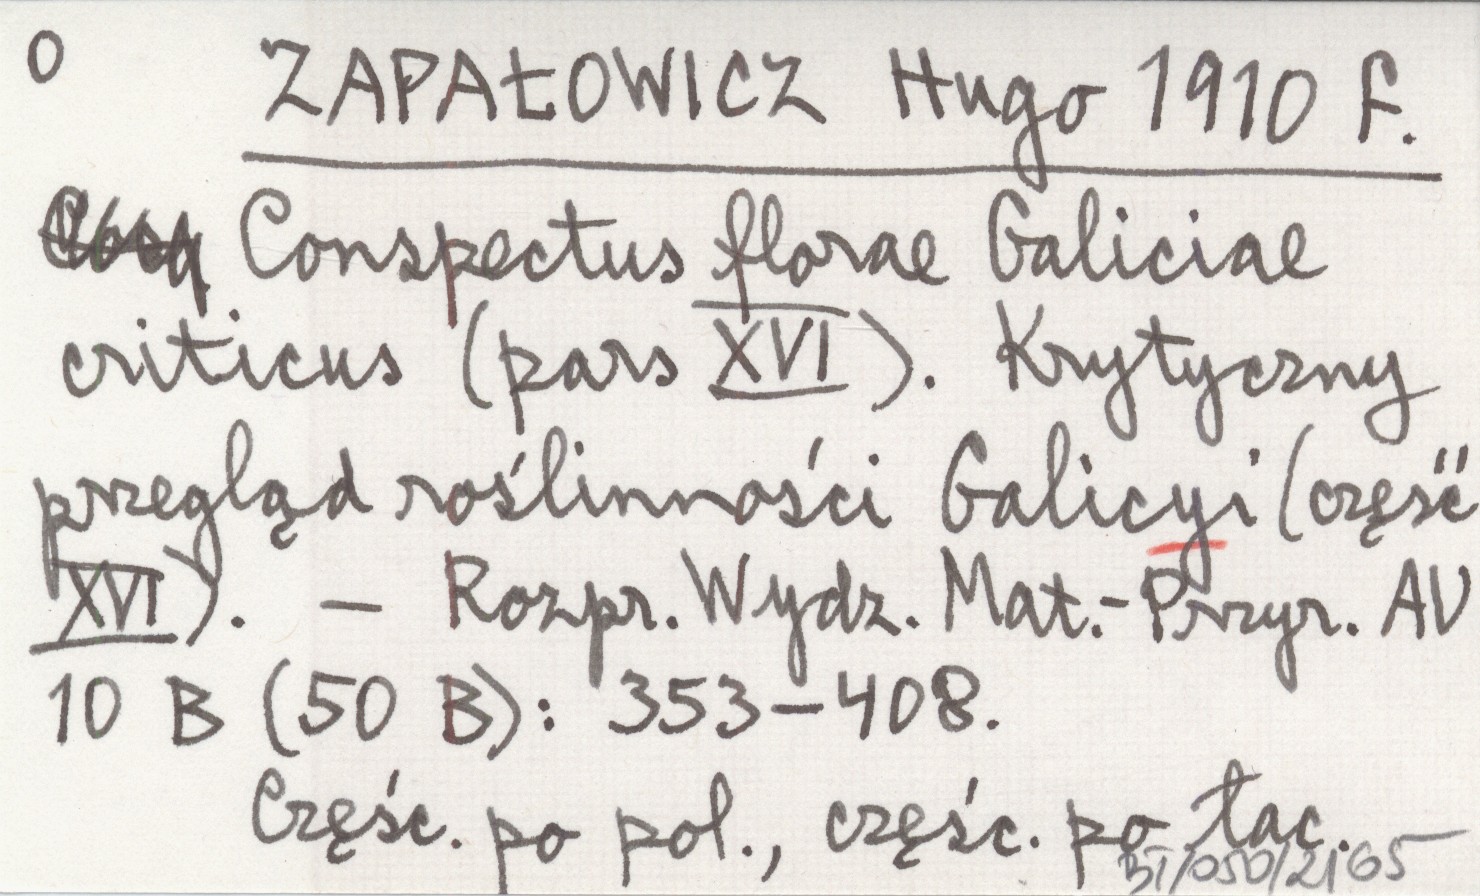 O ZAPAŁOWICZ Hugo 1910 F.
Conspectus florae Galiciae
criticus (pars XVI). Krytyczny
przegląd roślinności Galicyi (część
XVI). — Rozpr. Wydz. Mat.-Przyr. AU
10 B (50 B): 353–408.
Część. po pol., część. po łac.
BT/050/2165